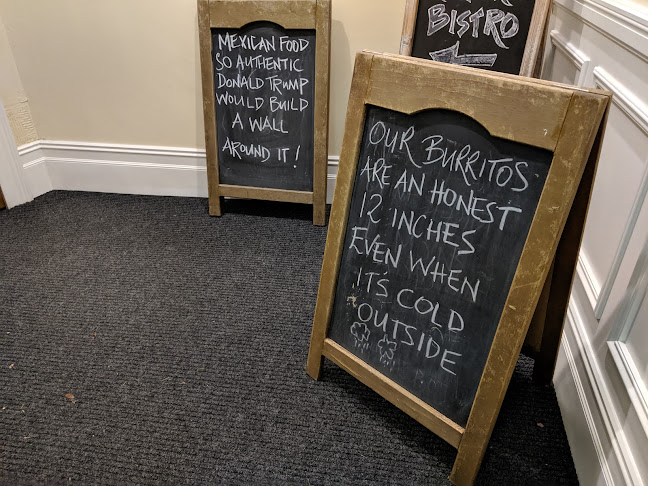 MEXICAN FOOD
SO AUTHENTIC
DONALD TRUMP
WOULD BUILD
A WALL
AROUND IT!
BISTRO
OUR BURRITOS
ARE AN HONEST
12 INCHES
EVEN WHEN
IT'S COLD
OUTSIDE